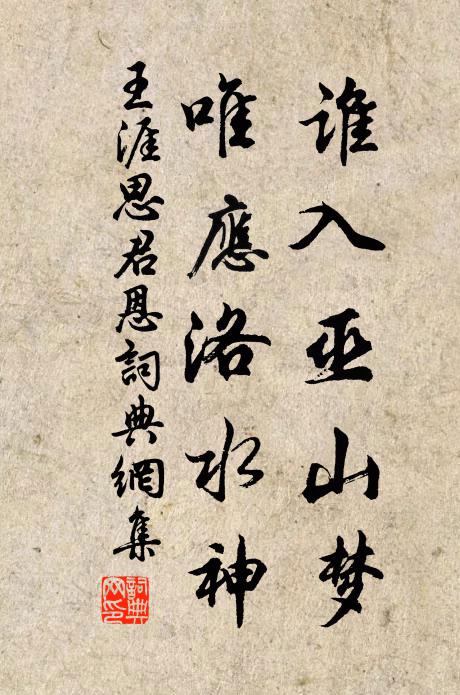 誰入巫山梦
唯應洛水神
王涯思君恩詞典網集
詞典
网印